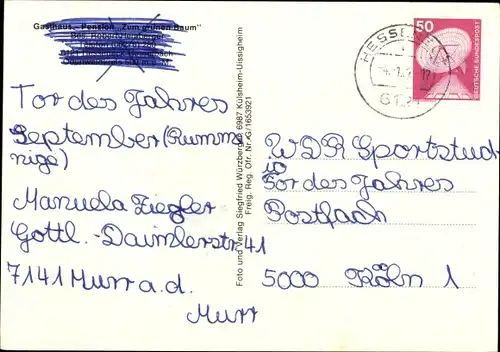 Gasthaus - Pension "Zum grünen Baum"
Tor des Jahres
September (Rumme
nige)
Manuela Ziegler
Gottl.-Daimlerstr 41
7141 Murr a.d.
Murr
Foto und Verlag Siegfried Würzberger, 6987 Külsheim-Uissigheim
Freig. Reg. Ofr. Nr. G/1653921
HESSE
50
DEUTSCHE BUNDESPOST
WDR Sportstud
io
Tor des Jahres
Postfach
5000 Köln 1